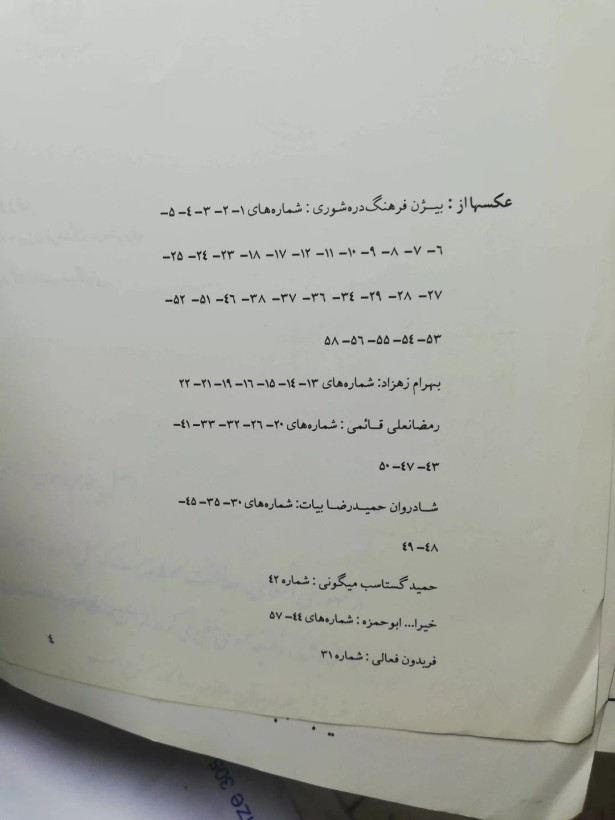 عکسها از : بیـژن فرهنگ‌دره‌شوری : شماره‌های ۱- ۲- ۳- ٤- ۵-
۶- ۷- ۸- ۹- ۱۰- ۱۱- ۱۲- ۱۷- ۱۸- ۲۳- ۲٤- ۲۵-
۲۷- ۲۸- ۲۹- ۳٤- ۳۶- ۳۷- ۳۸- ٤۶- ۵۱- ۵۲-
۵۳- ۵٤- ۵۵- ۵۶- ۵۸
بهرام زهزاد: شماره‌های ۱۳- ۱٤- ۱۵- ۱۶- ۱۹- ۲۱- ۲۲
رمضانعلی قـائمی : شماره‌های ۲۰- ۲۶- ۳۲- ۳۳- ٤۱-
٤۳- ٤۷- ۵۰
شـادروان حمیـدرضـا بیات: شماره‌های ۳۰- ۳۵- ٤۵-
٤۸- ٤۹
حمید گستاسب میگونی : شماره ٤۲
خیرا... ابوحمزه : شماره‌های ٤٤- ۵۷
فریدون فعالی : شماره ۳۱
٤
ze 305